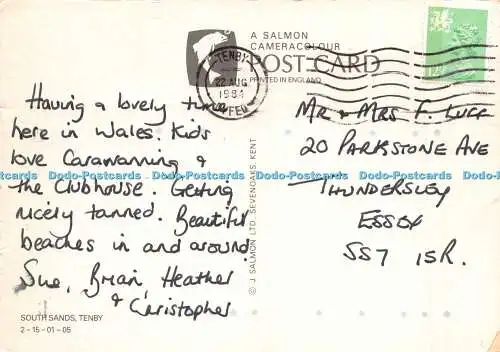 A SALMON
CAMERACOLOUR
POST CARD
PRINTED IN ENGLAND
TENBY
22 AUG
1984
DYFED
Having a lovely time
here in Wales. Kids
love Caravanning &
the Clubhouse. Getting
nicely tanned. Beautiful
beaches in and around.
Sue, Brian, Heather
& Christopher
SOUTH SANDS, TENBY
2-15-01-05
© J. SALMON LTD. SEVENOAKS. KENT.
MR & MRS F. LUFF
20 PARKSTONE AVE
THUNDERSLEY
ESSEX
SS7 1SR.
Dodo-Postcards Dodo-Postcards Dodo-Postcards Dodo-Postcards